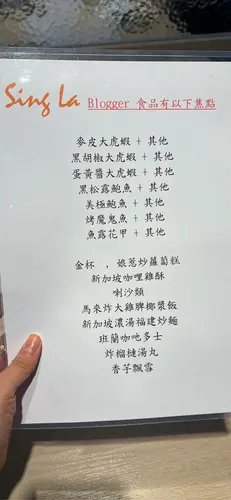 Sing La Blogger 食品有以下焦點
麥皮大虎蝦 + 其他
黑胡椒大虎蝦 + 其他
蛋黃醬大虎蝦 + 其他
黑松露鮑魚 + 其他
美極鮑魚 + 其他
烤魔鬼魚 + 其他
魚露花甲 + 其他
金杯 , 娘惹炒蘿蔔糕
新加坡咖哩雞酥
喇沙類
馬來炸大雞脾椰漿飯
新加坡濃湯福建炒麵
班蘭咖吔多士
炸榴槤湯丸
香芋飄雪